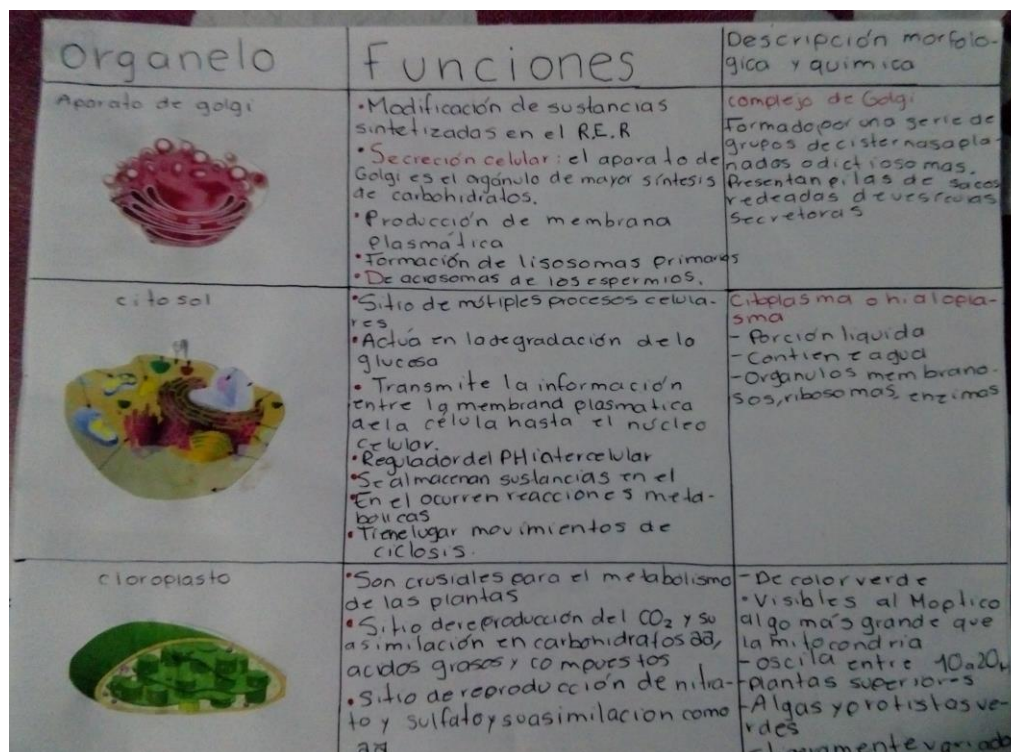 Organelo
Funciones
Descripción morfolo-
gica y quimica
Aparato de golgi
•Modificación de sustancias
sintetizadas en el R.E.R
•Secreción celular: el aparato de
Golgi es el orgánulo de mayor síntesis
de carbohidratos.
•Producción de membrana
plasmática
•Formación de lisosomas primarios
•De acrosomas de los espermios.
complejo de Golgi
Formado por una serie de
grupos de cisternas apla-
nados o dictiosomas.
Presentan pilas de sacos
redeadas de vesículas
secretoras
citosol
•Sitio de múltiples procesos celula-
res
•Actúa en la degradación de lo
glucosa
•Transmite la información
entre la membrana plasmatica
de la célula hasta el núcleo
celular.
•Regulador del PH intercelular
•Se almacenan sustancias en el
•En el ocurren reacciones meta-
bolicas
•Tiene lugar movimientos de
ciclosis.
Citoplasma o hialopla-
sma
- Porción liquida
- Contiene agua
- Organulos membrano-
sos, ribosomas, enzimas
cloroplasto
•Son crusiales para el metabolismo
de las plantas
•Sitio de reproducción del CO₂ y su
asimilación en carbohidratos aa,
acidos grasos y compuestos
•Sitio de reproducción de nitra-
to y sulfato y su asimilacion como
aa
- De color verde
•Visibles al Moptico
algo más grande que
la mitocondria
- oscila entre 10a20
- plantas superiores
- Algas y protistos ve-
rdes